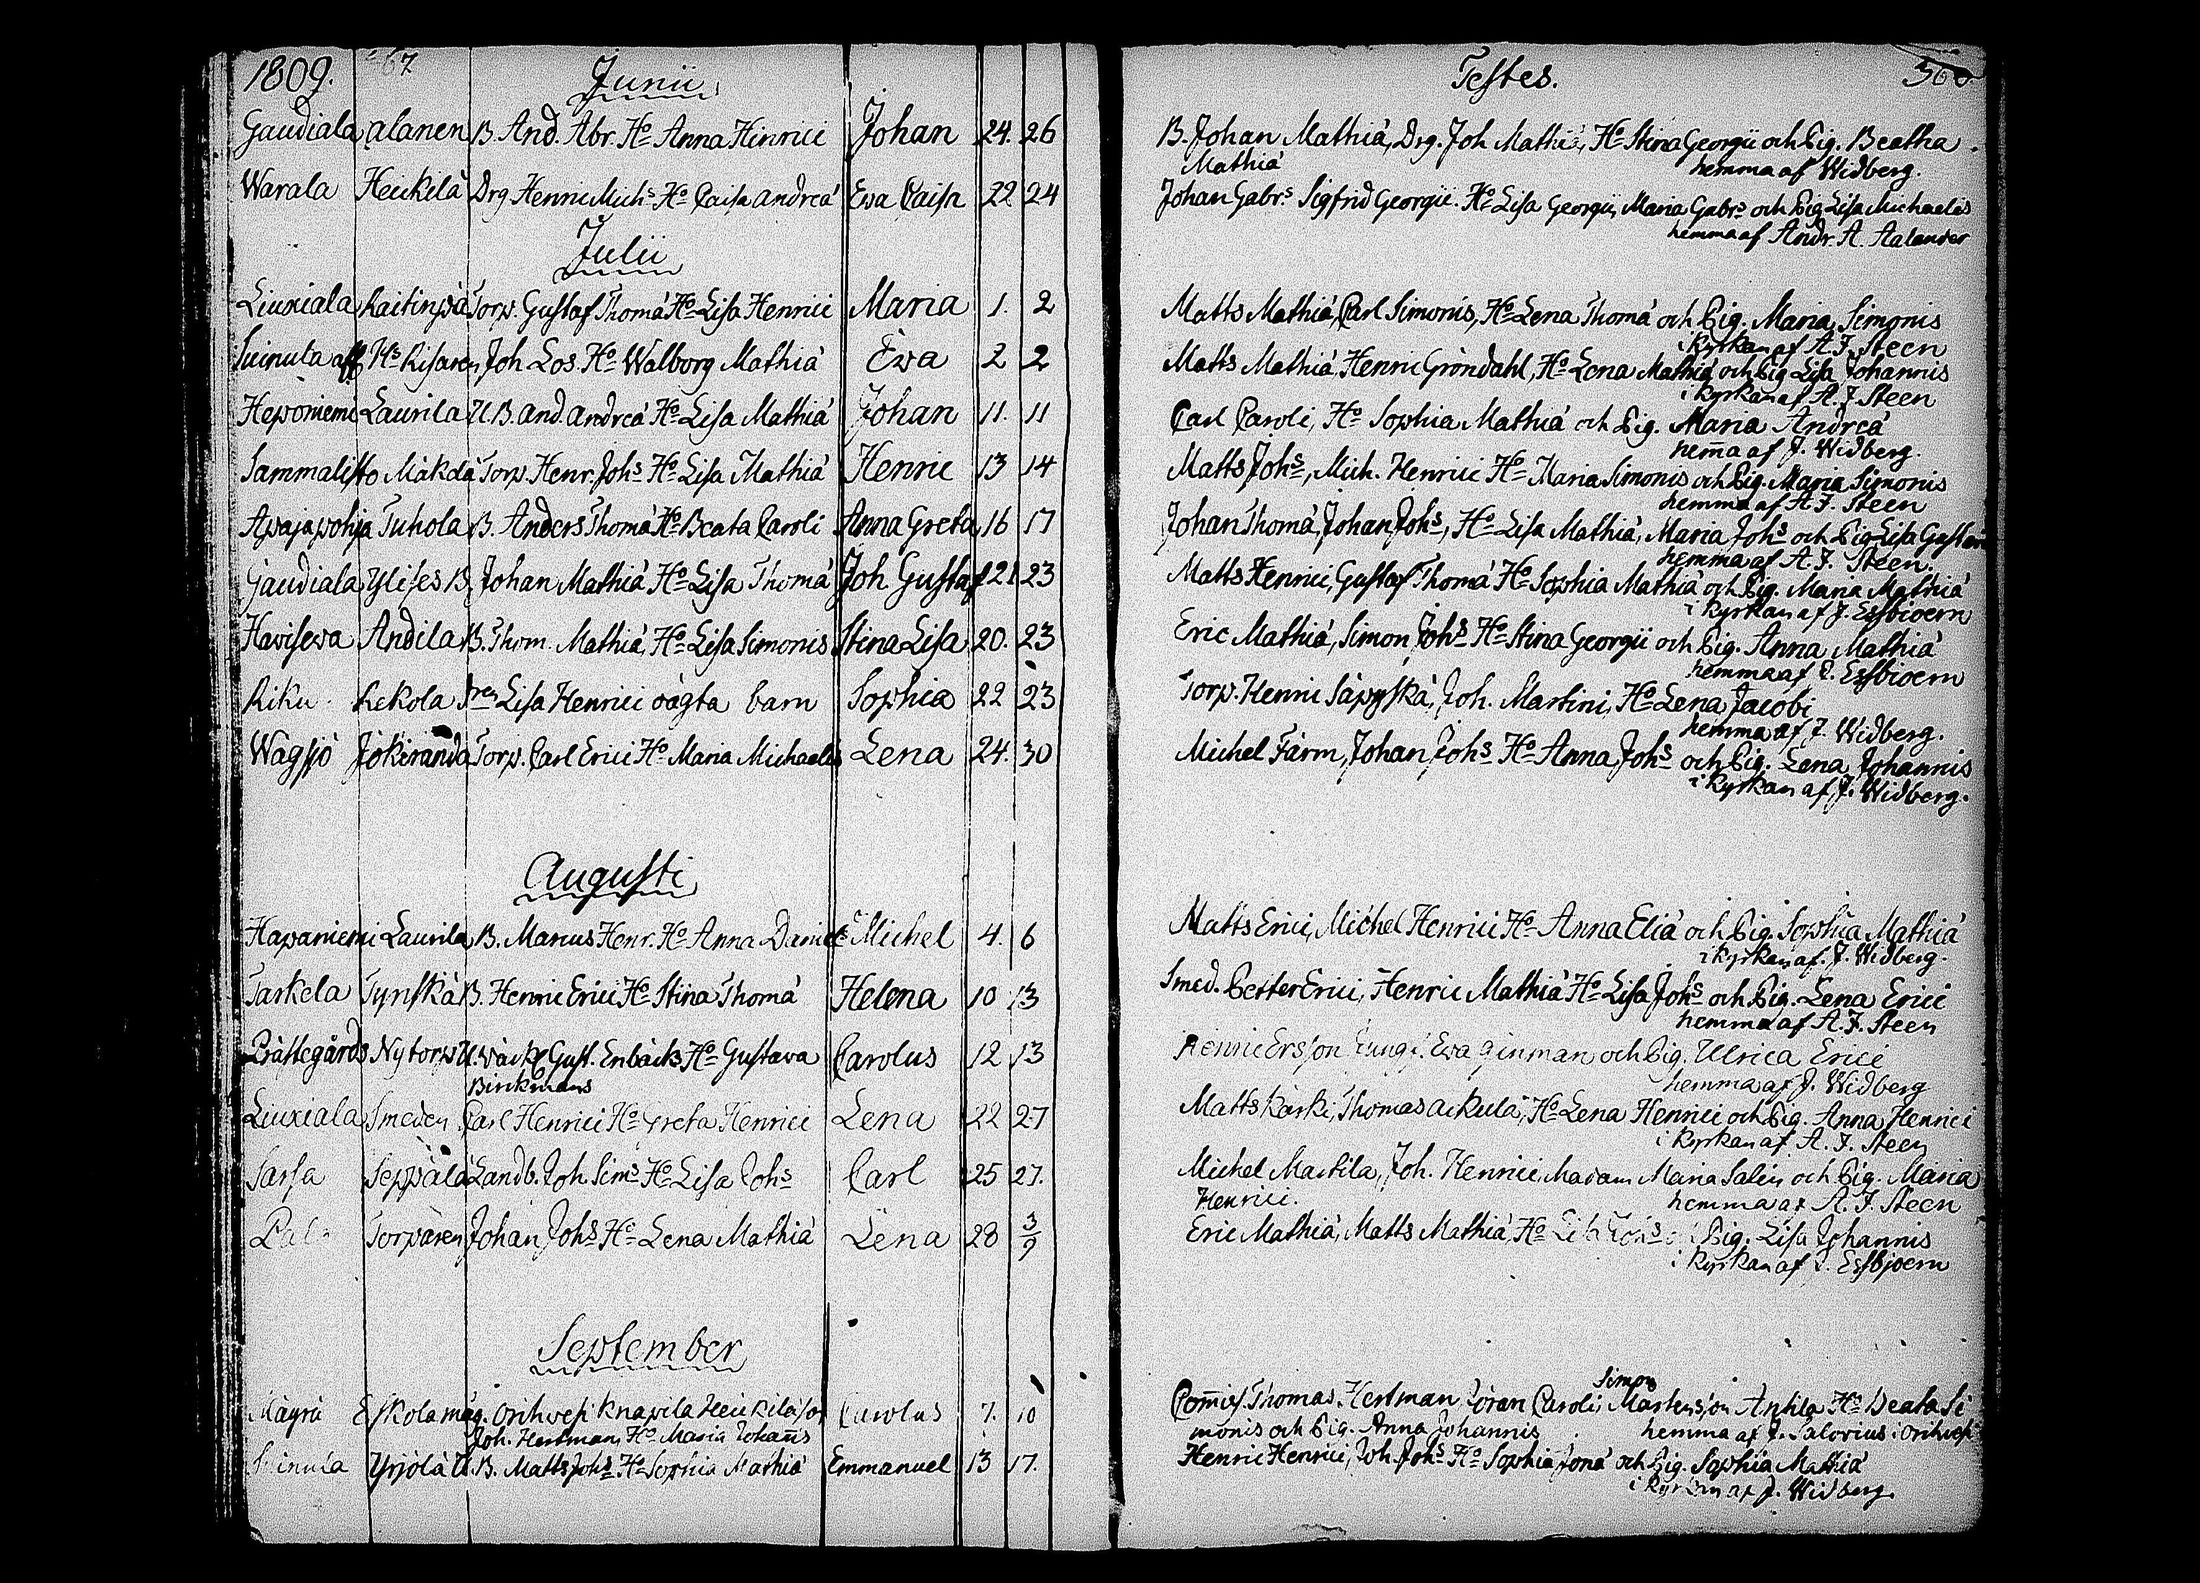 1809. 67. Junii
Gaudiala alanen B. And. Abr. Ho Anna Hinrici Johan 24. 26
Warala Heickelä Drg Henric Michs Ho Caisa Andreä Eva Caisa 22 24
Julii
Liuxiala Torp. Gustaf Thomä Ho Lisa Henrici Maria 1. 2
Joh Los. Ho Walborg Mathiä Ewa 2 2
Laurila U.B. And. Andreä Ho Lisa Mathiä Johan 11. 11
Sammalisto Mäkelä Torp. Henr. Johs Ho Lisa Mathiä Henric 13 14
Apajapohja Tuhola B. Anders Thomä Ho Beata Caroli Anna Greta 16 17
Gaudiala Ylises B. Johan Mathiä Ho Lisa Thomä Joh Gustaf 21 23
Havisewa Andila B. Thom. Mathiä Ho Lisa Simonis Stina Lisa 20. 23
Riku Lisa Henrici oägta barn Sophia 22 23
Wägsjö Jokiranda Torp. Carl Erici Ho Maria Michaelis Lena 24. 30
Augusti
Hapaniemi Laurila B. Marcus Henr. Ho Anna Daniels Michel 4. 6
Tarkela Tynskä B. Henric Erici Ho Stina Thomä Helena 10 13
Prästegårds Nytorp Gust. Enbäck Ho Gustava Carolus 12 13
Birckmans
Liuxiala Smeden Carl Henrici Ho Greta Henrici Lena 22 27
Sarsa Seppälä Landb. Joh. Sims Ho Lisa Johs Carl 25 27.
Torparen Johan Johs Ho Lena Mathiä Lena 28 3/9
September
Mäyrä Eskola mäg. Orihvesi Knapila Heickilä Carolus 7. 10
Joh. Hertman, Ho Maria Johañis
Yrjölä U.B. Matts Johs Ho Sophia Mathiä Emmanuel 13 17.
Testes.
B. Johan Mathiä, Drg. Joh Mathiä, Ho Stina Georgii och Pig. Beatha
Mathiä hemma af Widberg.
Johan Gabrs Sigfrid Georgii. Ho Lisa Georgii, Maria Gabrs och Pig Lisa Michaelis
hemma af Andr. A. Aalander
Matts Mathiä, Carl Simonis, Ho Lena Thomä och Pig. Maria Simonis
i kyrkan af A. J. Steen
Matts Mathiä, Henric Gröndahl, Ho Lena Mathiä och Pig Lisa Johannis
i kyrkan af A. J. Steen
Carl Caroli, Ho Sophia Mathiä och Pig. Maria Andreä
hem̄a af J. Widberg.
Matts Johs, Mich. Henrici Ho Maria Simonis och Pig. Maria Simonis
hemma af A. J. Steen
Johan Thomä, Johan Johs, Ho Lisa Mathiä, Maria Johs och Pig Lisa
hemma af A. J. Steen.
Matts Henrici, Gustaf Thomä Ho Sophia Mathiä och Pig. Maria Mathiä
i kyrkan af J. Essbioern
Eric Mathiä, Simon Johs Ho Stina Georgii och Pig. Anna Mathiä
hemma af J. Essbioern
Torp. Henric Säpyskä, Joh. Martini, Ho Lena Jacobi
hemma af J. Widberg.
Michel Färm, Johan Johs Ho Anna Johs och Pig. Lena Johannis
i kyrkan af J. Widberg.
Matts Erici, Michel Henrici Ho Anna Eliä och Pig. Sophia Mathiä
i kyrkan af J. Widberg.
Smed. Petter Erici, Henric Mathiä Ho Lisa Johs och Pig. Lena Erici
hemma af A. J. Steen
Henric Ersson Eva Ginman och Pig. Ulrica Erici
hemma af J. Widberg
Matts Kärki, Thomas Ho Lena Henrici och Pig. Anna Henrici
i kyrkan af A. J. Steen
Michel Martila, Joh. Henrici, Madam Maria Salin och Pig. Maria
Henrici. hemma af A. J. Steen
Eric Mathiä, Matts Mathiä, Ho Lisa Johs och Pig. Lisa Johannis
i kyrkan af J. Essbjoern
Simon
Thomas Hertman Göran Caroli, Mårtensson Antila Ho Beata Si
monis och Pig. Anna Johannis hemma af J. Salovius i Orihvesi
Henric Henrici, Joh. Johs Ho Sophia Jonä och Pig. Sophia Mathiä
i kyrkan af J. Widberg.